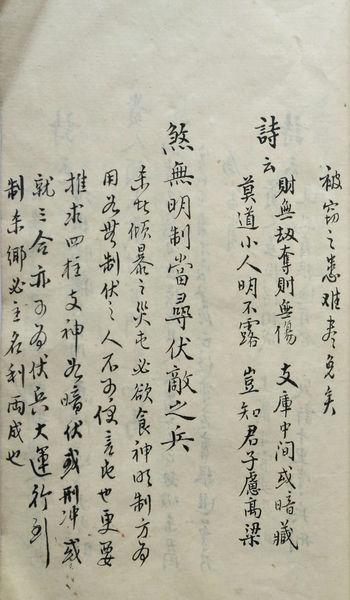 被窃之患难尽免矣
詩云
財無劫奪則無傷 支庫中间或暗藏
莫道小人明不露 豈知君子慮高梁
煞無明制當尋伏敵之兵
未必傾暴之災屯必欲食神明制方為
用若無制伏之人不可便言屯也更要
推求四柱支神若暗伏或刑冲或
就三合亦可為伏兵大運行到
制未鄉必主名利兩成也